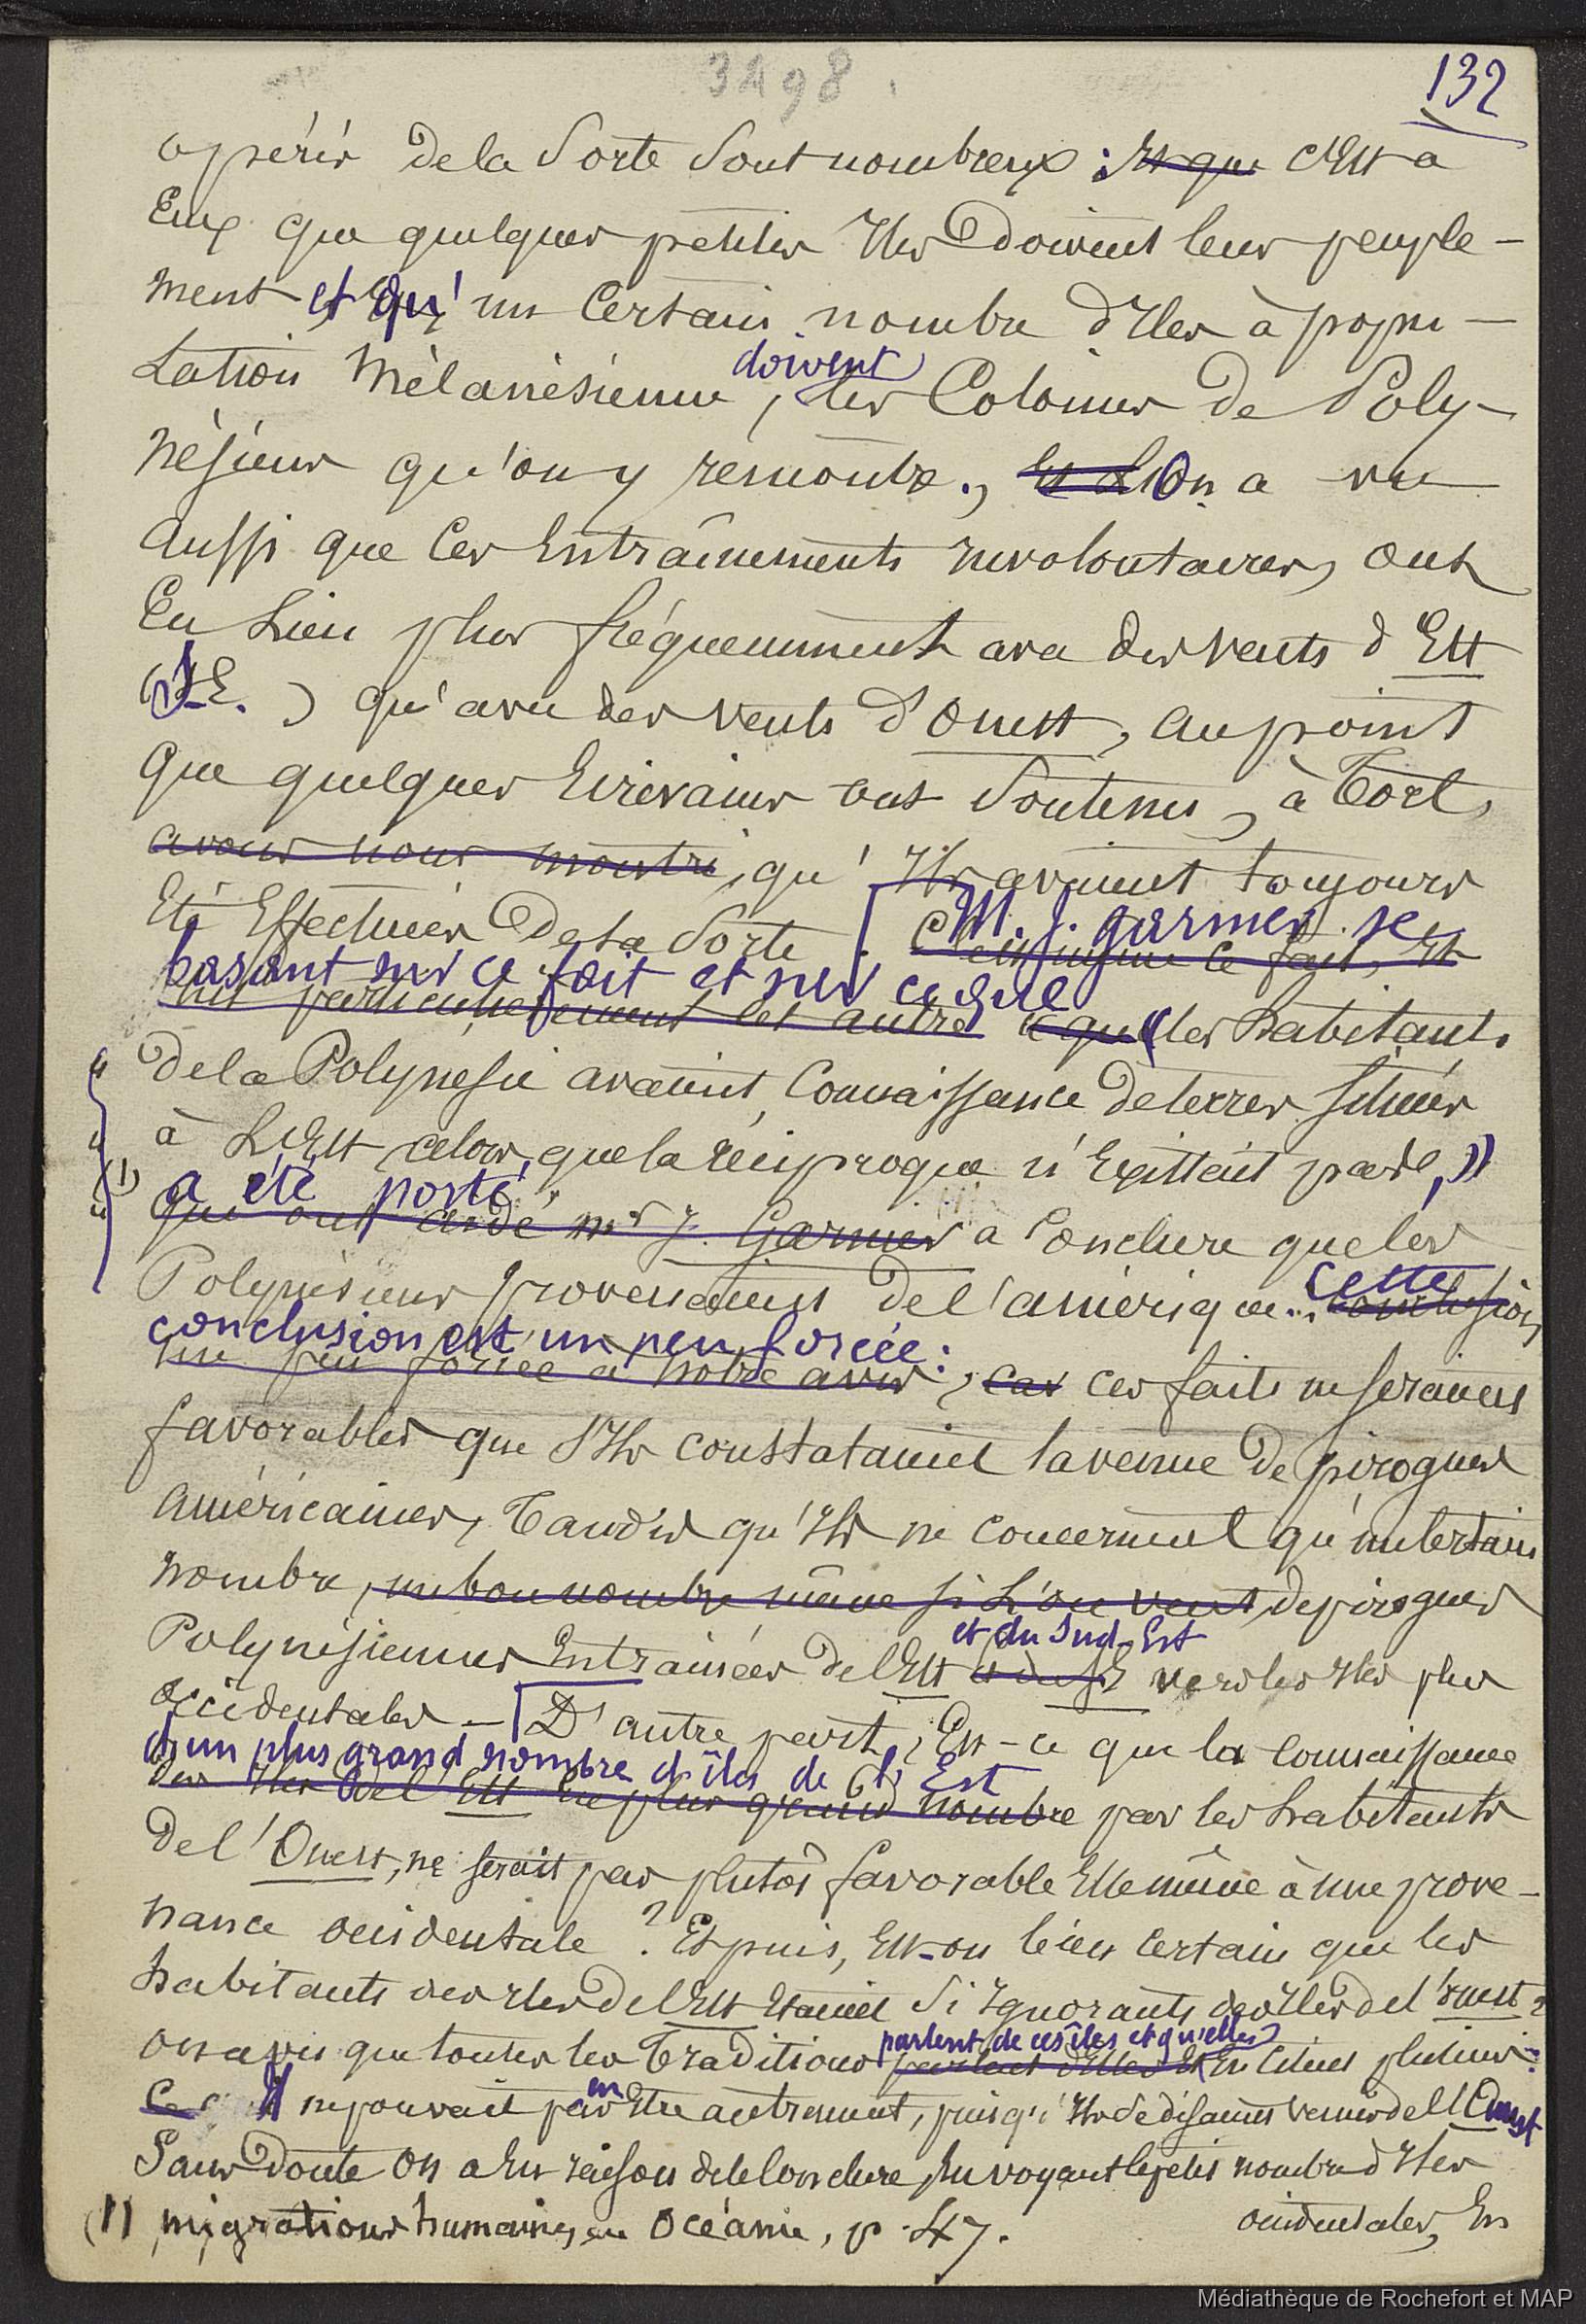 3498.
132
opérés de la sorte sont nombreux : et que c'est à
Eux que quelques petites Iles doivent leur peuple-
ment et qu'un Certain nombre d'Iles à popu-
lation Mélanésienne, doivent les Colonies de Poly-
nésiens qu'on y rencontre., Et l'On a vu
aussi que Ces Entraînements involontaires, ont
Eu Lieu plus fréquemment avec des vents d'Est
(S.E.) qu'avec des vents d'ouest, au point
que quelques Ecrivains ont Soutenu, à Tort,
avons nous montré, qu'Ils avaient toujours
Eté Effectués de la Sorte. [M. J. garnier se
C'est même ce fait, Et
basant sur ce fait et sur ce que
particulièrement cet autre que "les habitants
de la Polynésie avaient Connaissance de terres situées
à L'Est, alors que la réciproque n'Existait pas, »
(1) a été porté
qui ont aidé Mr J. Garnier a Conclure que les
Polynésiens provenaient de l'amérique... Cette conclusion
conclusion est un peu forcée :
un peu forcée à notre avis, car ces faits ne seraient
favorables que S'Ils constataient la venue de pirogues
américaines, Tandis qu'Ils ne concernent qu'un certain
nombre, un bon nombre même si L'on veut, de pirogues
Polynésiennes Entrainées de l'Est et du Sud-Est et du SE vers les Iles plus
occidentales — [D'autre part, Est-ce que la connaissance
d'un plus grand nombre d'îles de l'Est
des Iles de l'Est En plus grand nombre par les habitants
de l'Ouest, ne serait pas plutôt favorable Elle même à une prove-
nance occidentale ? Et puis, Est-on bien certain que les
habitants des Iles de l'Est Etaient Si Ignorants des Iles de l'ouest ?
on a vu que toutes les Traditions parlent de ces îles et qu'elles parlent d'Elles Et En Citent plusieurs :
Ce Il ne pouvait pas en Etre autrement, puisqu'Ils se disaient venus de l'Ouest
Sans Doute On a Eu raison de le Conclure, En voyant le petit nombre d'Iles
occidentales, En
(1) migrations humaines en Océanie, p. 47.
Médiathèque de Rochefort et MAP